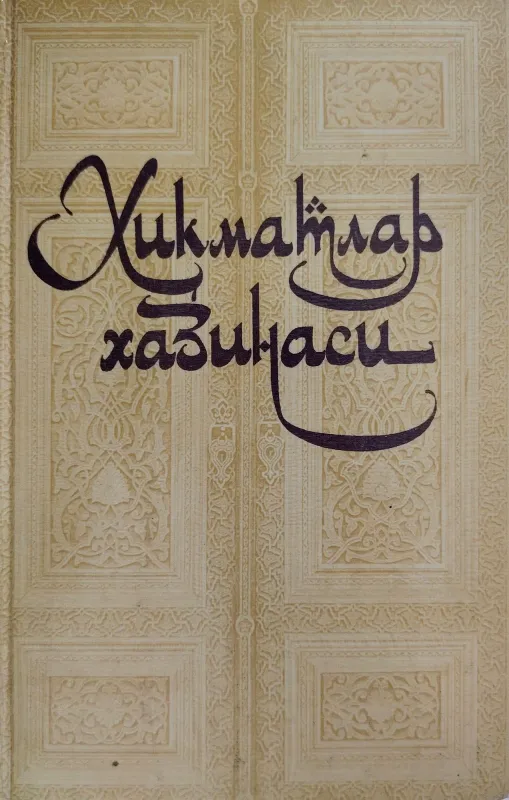 Ҳикматлар
хазинаси